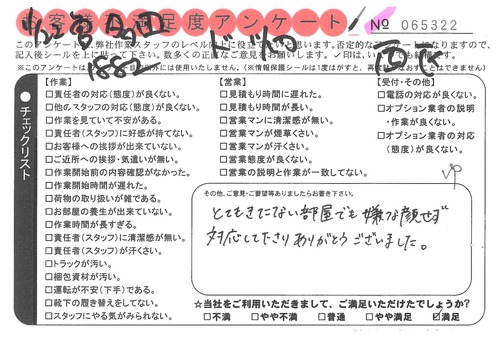 お客様の満足度アンケート
No 065322
このアンケートは、弊社作業スタッフのレベル向上に役立てたいと思います。否定的なアンケートになりますので、
記入後シールを上に貼って下さい。数多くの正直なご意見をお願いします。✓印は、いくつでもお結構です。
【作業】
□責任者の対応(態度)が良くない。
□他のスタッフの対応(態度)が良くない。
□作業を見ていて不安がある。
□責任者(スタッフ)に好感が持てない。
□お客様への挨拶が出来ていない。
□ご近所への挨拶・気遣いが無い。
□作業開始前の内容確認がなかった。
□作業開始時間が遅れた。
□荷物の取り扱いが雑である。
□お部屋の養生が出来ていない。
□作業時間が長すぎる。
□責任者(スタッフ)に清潔感が無い。
□責任者(スタッフ)が汗くさい。
□トラックが汚い。
□梱包資材が汚い。
□運転が不安(下手)である。
□靴下の履き替えをしてない。
□スタッフにやる気がみられない。
【営業】
□見積もり時間に遅れた。
□見積もり時間が長い。
□営業マンに清潔感が無い。
□営業マンが煙草くさい。
□営業マンが汗くさい。
□営業態度が良くない。
□営業の説明と作業が一致してない。
【受付・その他】
□電話の対応が良くない。
□オプション業者の説明
・作業が良くない。
□オプション業者の対応
(態度)が良くない。
チェックリスト
その他、ご意見・ご要望等ありましたらお書き下さい。
とてもきたない部屋でも嫌な顔せず
対応して下さりありがとうございました。
☆当社をご利用いただきまして、ご満足いただけたでしょうか?
□不満 □やや不満 □普通 □やや満足 ☑満足